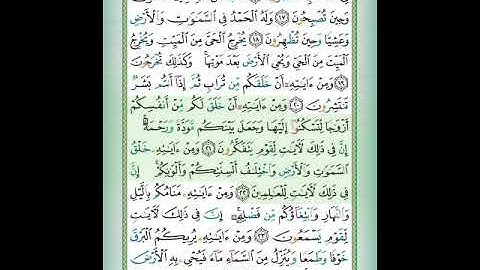 وَحِينَ تُصْبِحُونَ ١٧ وَلَهُ الْحَمْدُ فِي السَّمَٰوَٰتِ وَالْأَرْضِ
وَعَشِيًّا وَحِينَ تُظْهِرُونَ ١٨ يُخْرِجُ الْحَيَّ مِنَ الْمَيِّتِ وَيُخْرِجُ
الْمَيِّتَ مِنَ الْحَيِّ وَيُحْيِ الْأَرْضَ بَعْدَ مَوْتِهَا ۚ وَكَذَٰلِكَ تُخْرَجُونَ
١٩ وَمِنْ ءَايَٰتِهِۦٓ أَنْ خَلَقَكُم مِّن تُرَابٍ ثُمَّ إِذَآ أَنتُم بَشَرٌ
تَنتَشِرُونَ ٢٠ وَمِنْ ءَايَٰتِهِۦٓ أَنْ خَلَقَ لَكُم مِّنْ أَنفُسِكُمْ
أَزْوَٰجًا لِّتَسْكُنُوٓا۟ إِلَيْهَا وَجَعَلَ بَيْنَكُم مَّوَدَّةً وَرَحْمَةً ۚ
إِنَّ فِي ذَٰلِكَ لَءَايَٰتٍ لِّقَوْمٍ يَتَفَكَّرُونَ ٢١ وَمِنْ ءَايَٰتِهِۦ خَلْقُ
السَّمَٰوَٰتِ وَالْأَرْضِ وَاخْتِلَٰفُ أَلْسِنَتِكُمْ وَأَلْوَٰنِكُمْ ۚ إِنَّ
فِي ذَٰلِكَ لَءَايَٰتٍ لِّلْعَٰلِمِينَ ٢٢ وَمِنْ ءَايَٰتِهِۦ مَنَامُكُم بِالَّيْلِ
وَالنَّهَارِ وَابْتِغَآؤُكُم مِّن فَضْلِهِۦٓ ۚ إِنَّ فِي ذَٰلِكَ لَءَايَٰتٍ
لِّقَوْمٍ يَسْمَعُونَ ٢٣ وَمِنْ ءَايَٰتِهِۦ يُرِيكُمُ الْبَرْقَ
خَوْفًا وَطَمَعًا وَيُنَزِّلُ مِنَ السَّمَآءِ مَآءً فَيُحْيِۦ بِهِ الْأَرْضَ